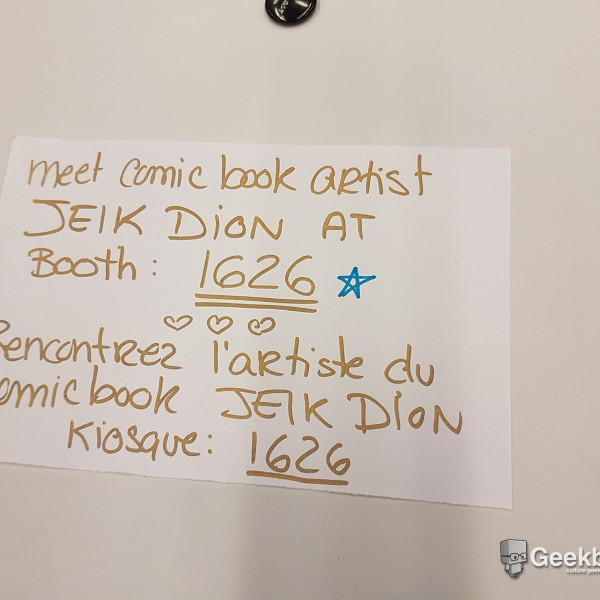 meet comic book artist
JEIK DION AT
Booth: 1626
Rencontrez l'artiste du
comic book JEIK DION
Kiosque: 1626
Geekb
culture geek